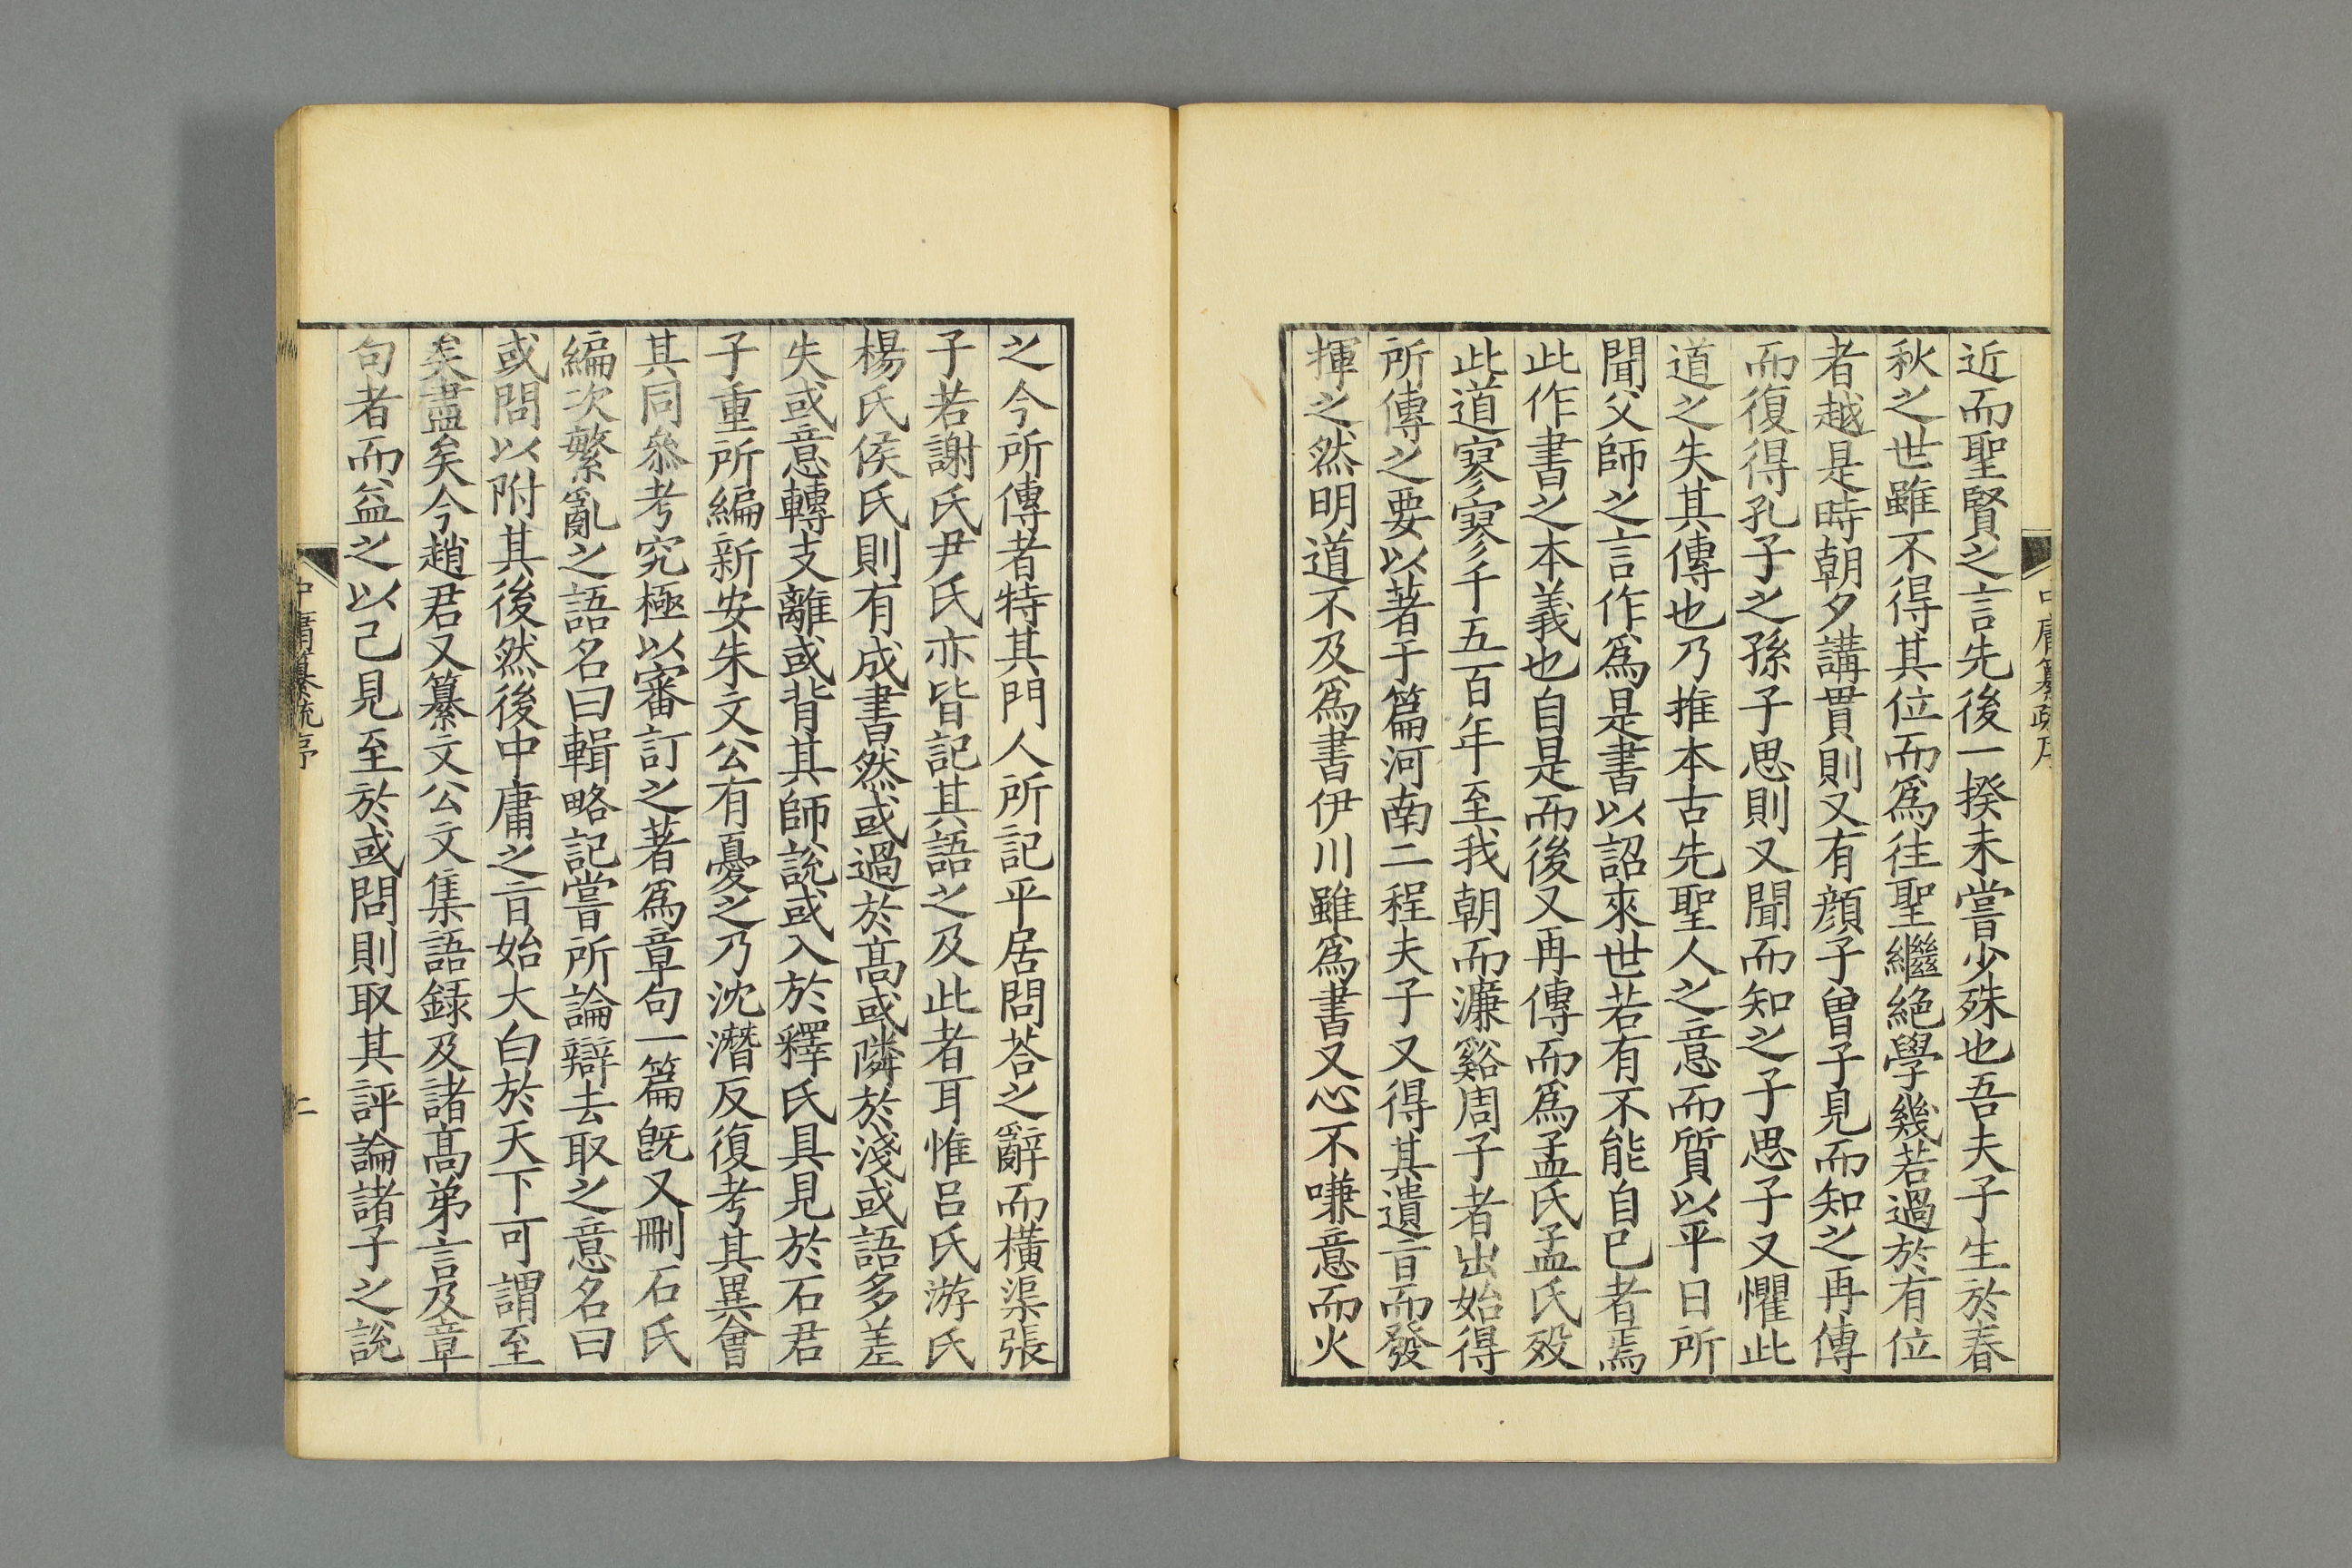 中庸纂疏序
近而聖賢之言先後一揆未嘗少殊也吾夫子生於春
秋之世雖不得其位而爲往聖繼絶學幾若過於有位
者越是時朝夕講貫則又有顔子曾子見而知之再傳
而復得孔子之孫子思則又聞而知之子思子又懼此
道之失其傳也乃推本古先聖人之意而質以平日所
聞父師之言作爲是書以詔來世若有不能自已者焉
此作書之本義也自是而後又再傳而爲孟氏孟氏殁
此道寥寥千五百年至我朝而濂谿周子者出始得
所傳之要以著于篇河南二程夫子又得其遺旨而發
揮之然明道不及爲書伊川雖爲書又心不嗛意而火
之今所傳者特其門人所記平居問荅之辭而橫渠張
子若謝氏尹氏亦皆記其語之及此者耳惟吕氏游氏
楊氏侯氏則有成書然或過於髙或隣於淺或語多差
失或意轉支離或背其師説或入於釋氏具見於石君
子重所編新安朱文公有憂之乃沈潛反復考其異會
其同叅考究極以審訂之著爲章句一篇旣又刪石氏
編次繁亂之語名曰輯略記嘗所論辯去取之意名曰
或問以附其後然後中庸之旨始大白於天下可謂至
矣盡矣今趙君又纂文公文集語録及諸髙弟言及章
句者而益之以己見至於或問則取其評論諸子之説
中庸纂疏序
二